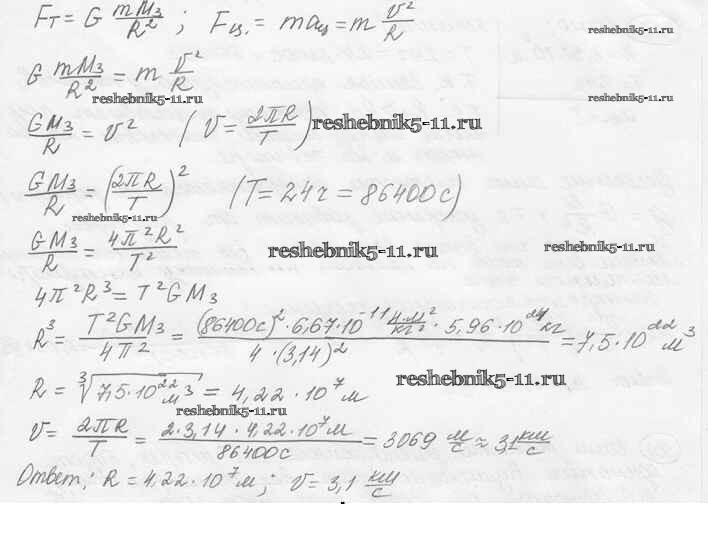 Fт = G mMз/R² ; Fц. = maц = m v²/R
reshebnik5-11.ru
G mMз/R² = m v²/R
reshebnik5-11.ru
reshebnik5-11.ru
GMз/R = v² (v = 2πR/T)
reshebnik5-11.ru
GMз/R = (2πR/T)² (T = 24ч = 86400с)
reshebnik5-11.ru
GMз/R = 4π²R²/T²
reshebnik5-11.ru
reshebnik5-11.ru
4π²R³ = T²GMз
R³ = T²GMз/4π² = (86400с)²·6,67·10⁻¹¹ Н·м²/кг²·5,96·10²⁴кг/4·(3,14)² = 7,5·10²² м³
R = ∛7,5·10²² м³ = 4,22·10⁷м
reshebnik5-11.ru
reshebnik5-11.ru
v = 2πR/T = 2·3,14·4,22·10⁷м/86400с = 3069 м/с ≈ 3,1 км/с
Ответ: R = 4,22·10⁷м; v = 3,1 км/с